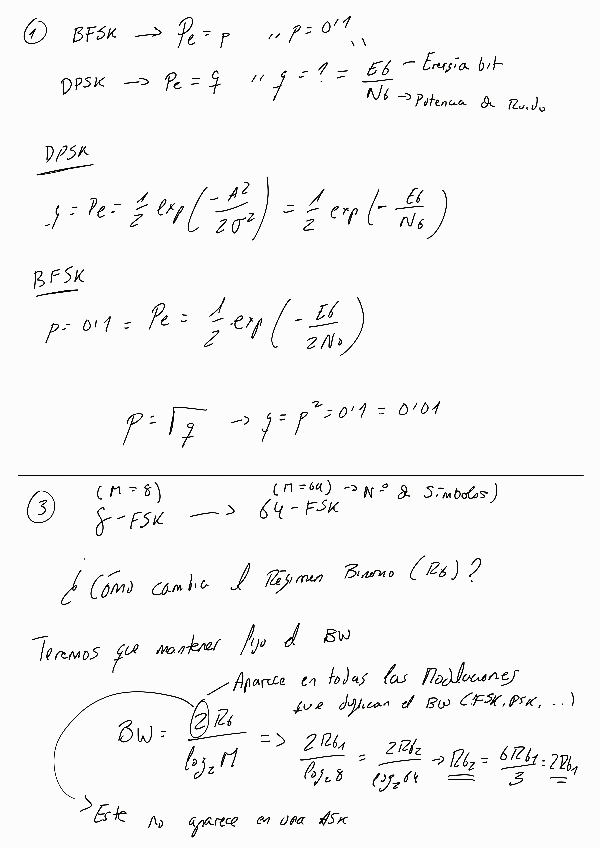 ① BFSK → Pe = p ,, p = 0'1
DPSK → Pe = q ,, q = ? = Eb/N0 – Energía bit
→ Potencia de Ruido
DPSK
q = Pe = 1/2 exp(-A²/2σ²) = 1/2 exp(- Eb/N0)
BFSK
p = 0'1 = Pe = 1/2 exp(- Eb/2N0)
p = √q → q = p² = 0'1 = 0'01
③ (M = 8) (M = 64) → Nº de Símbolos)
8-FSK → 64-FSK
¿Cómo cambia el Régimen Binario (Rb)?
Tenemos que mantener fijo el BW
Aparece en todas las Modulaciones
que duplican el BW (FSK, PSK, ...)
BW = 2Rb/log₂M => 2Rb1/log₂8 = 2Rb2/log₂64 → Rb2 = 6Rb1/3 = 2Rb1
Este no aparece en una ASK